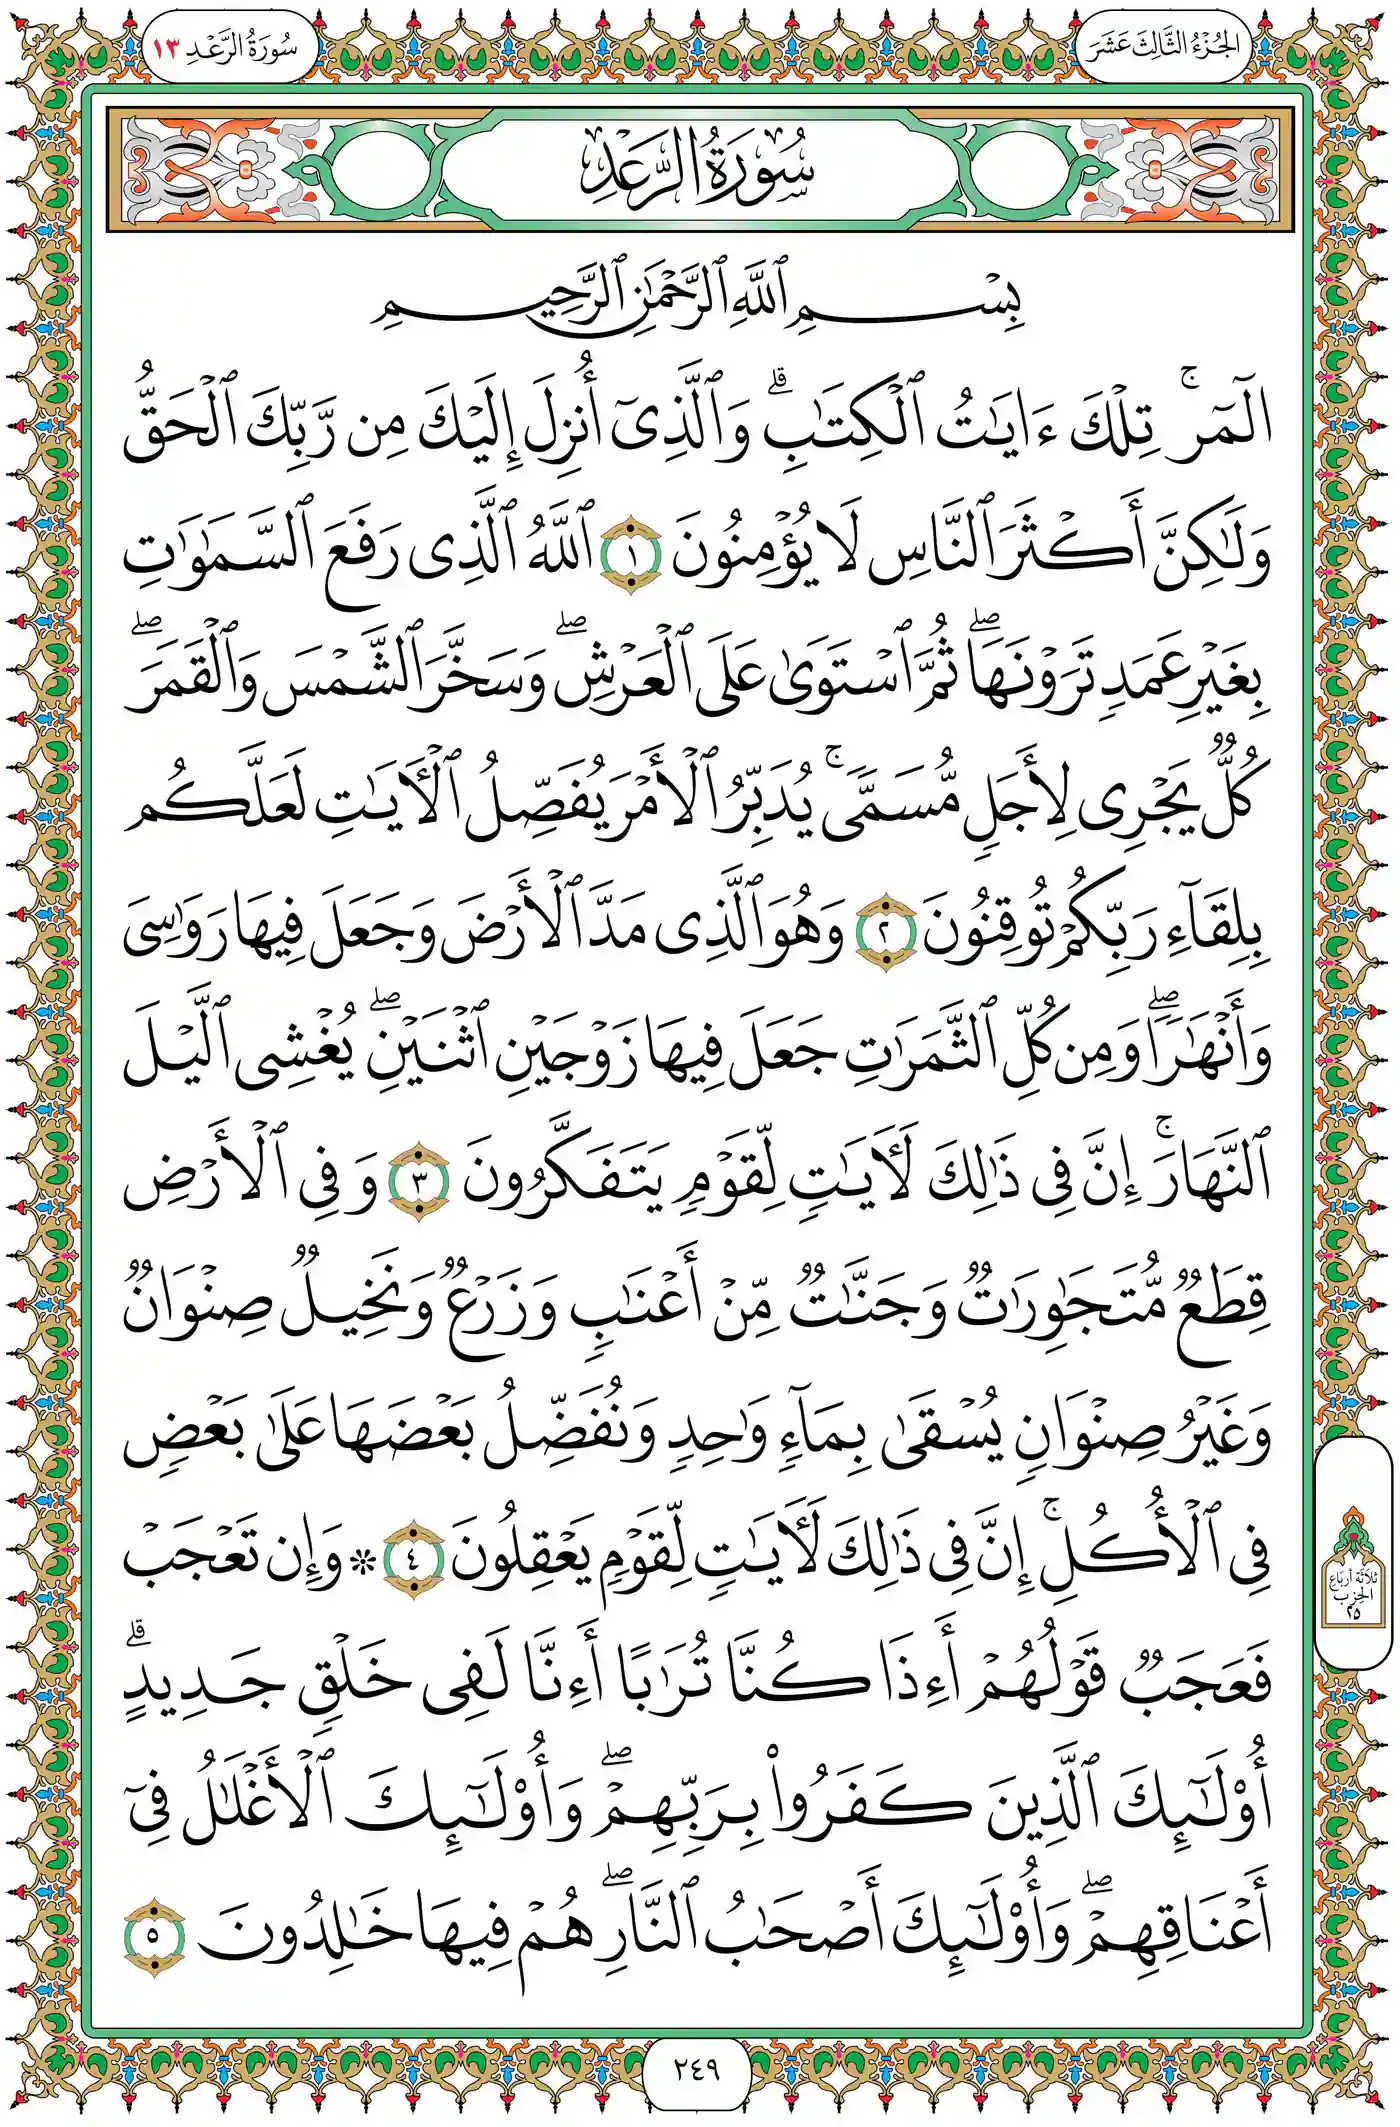 الجُزْءُ الثَّالِثَ عَشَرَ
سُورَةُ الرَّعْدِ ١٣
سُورَةُ الرَّعْدِ
بِسْمِ ٱللَّهِ ٱلرَّحْمَٰنِ ٱلرَّحِيمِ
الٓمٓرۚ تِلْكَ ءَايَٰتُ ٱلْكِتَٰبِۗ وَٱلَّذِىٓ أُنزِلَ إِلَيْكَ مِن رَّبِّكَ ٱلْحَقُّ
وَلَٰكِنَّ أَكْثَرَ ٱلنَّاسِ لَا يُؤْمِنُونَ ١ ٱللَّهُ ٱلَّذِى رَفَعَ ٱلسَّمَٰوَٰتِ
بِغَيْرِ عَمَدٍ تَرَوْنَهَاۖ ثُمَّ ٱسْتَوَىٰ عَلَى ٱلْعَرْشِۖ وَسَخَّرَ ٱلشَّمْسَ وَٱلْقَمَرَۖ
كُلٌّ يَجْرِى لِأَجَلٍ مُّسَمًّىۚ يُدَبِّرُ ٱلْأَمْرَ يُفَصِّلُ ٱلْأَيَٰتِ لَعَلَّكُم
بِلِقَآءِ رَبِّكُمْ تُوقِنُونَ ٢ وَهُوَ ٱلَّذِى مَدَّ ٱلْأَرْضَ وَجَعَلَ فِيهَا رَوَٰسِىَ
وَأَنْهَٰرًاۖ وَمِن كُلِّ ٱلثَّمَرَٰتِ جَعَلَ فِيهَا زَوْجَيْنِ ٱثْنَيْنِۖ يُغْشِى ٱلَّيْلَ
ٱلنَّهَارَۚ إِنَّ فِى ذَٰلِكَ لَأَيَٰتٍ لِّقَوْمٍ يَتَفَكَّرُونَ ٣ وَفِى ٱلْأَرْضِ
قِطَعٌ مُّتَجَٰوِرَٰتٌ وَجَنَّٰتٌ مِّنْ أَعْنَٰبٍ وَزَرْعٌ وَنَخِيلٌ صِنْوَانٌ
وَغَيْرُ صِنْوَانٍ يُسْقَىٰ بِمَآءٍ وَٰحِدٍ وَنُفَضِّلُ بَعْضَهَا عَلَىٰ بَعْضٍ
فِى ٱلْأُكُلِۚ إِنَّ فِى ذَٰلِكَ لَأَيَٰتٍ لِّقَوْمٍ يَعْقِلُونَ ٤ ۞ وَإِن تَعْجَبْ
فَعَجَبٌ قَوْلُهُمْ أَءِذَا كُنَّا تُرَٰبًا أَءِنَّا لَفِى خَلْقٍ جَدِيدٍۗ
أُوْلَٰٓئِكَ ٱلَّذِينَ كَفَرُواْ بِرَبِّهِمْۖ وَأُوْلَٰٓئِكَ ٱلْأَغْلَٰلُ فِىٓ
أَعْنَاقِهِمْۖ وَأُوْلَٰٓئِكَ أَصْحَٰبُ ٱلنَّارِۖ هُمْ فِيهَا خَٰلِدُونَ ٥
ثَلَاثَة أَربَاع
الحِزب
٢٥
٢٤٩